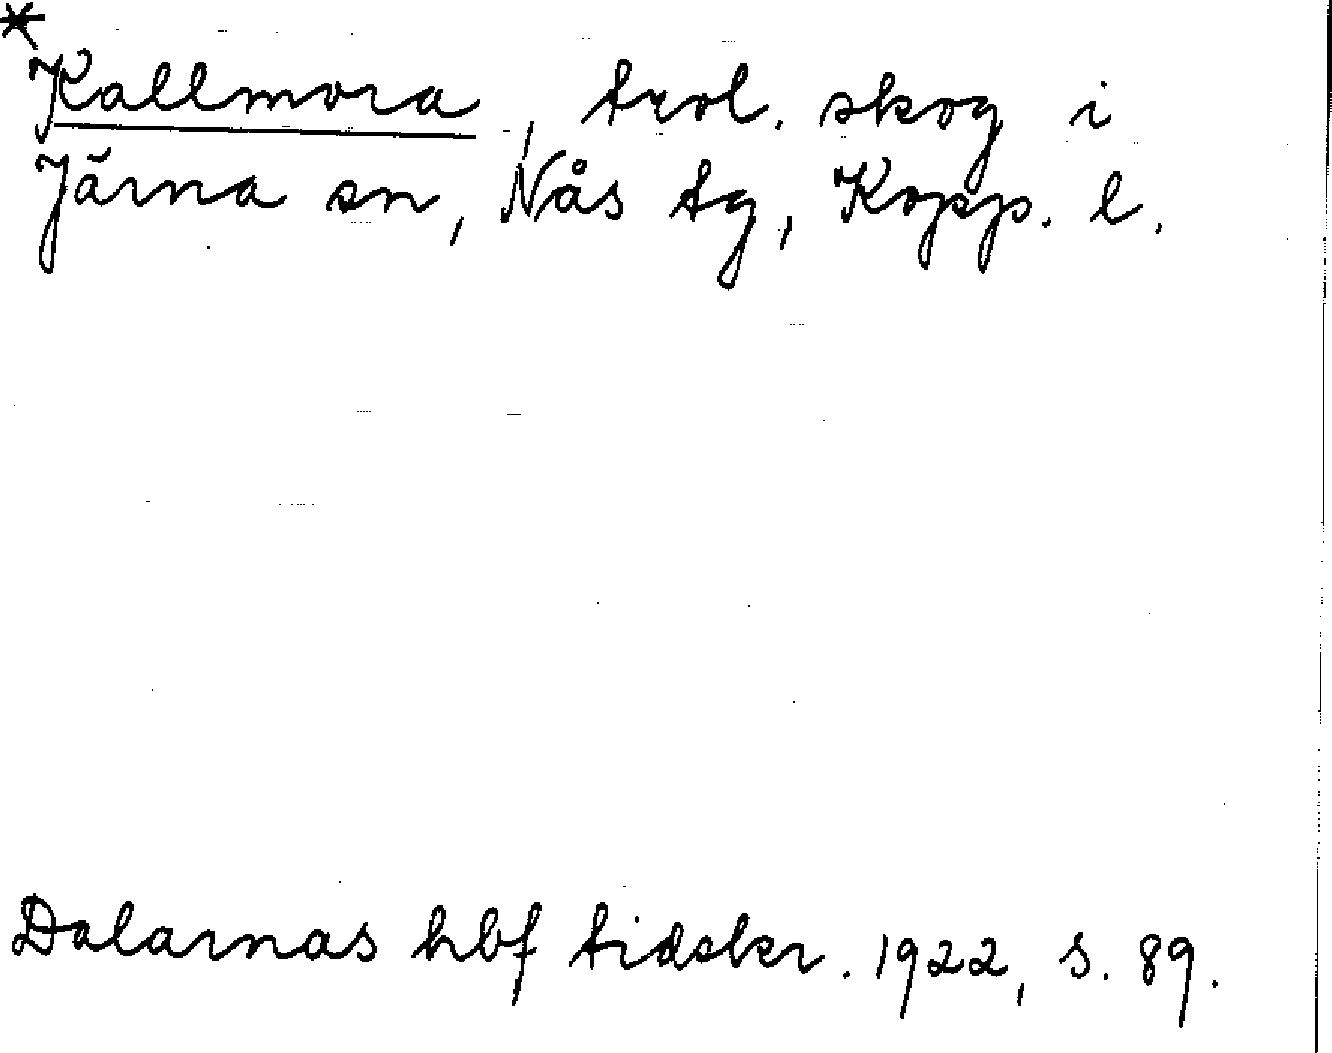 *
Kallmora, trol. skog i
Järna sn, Nås tg, Kopp. l.
Dalarnas hbf tidskr. 1922, s. 89.